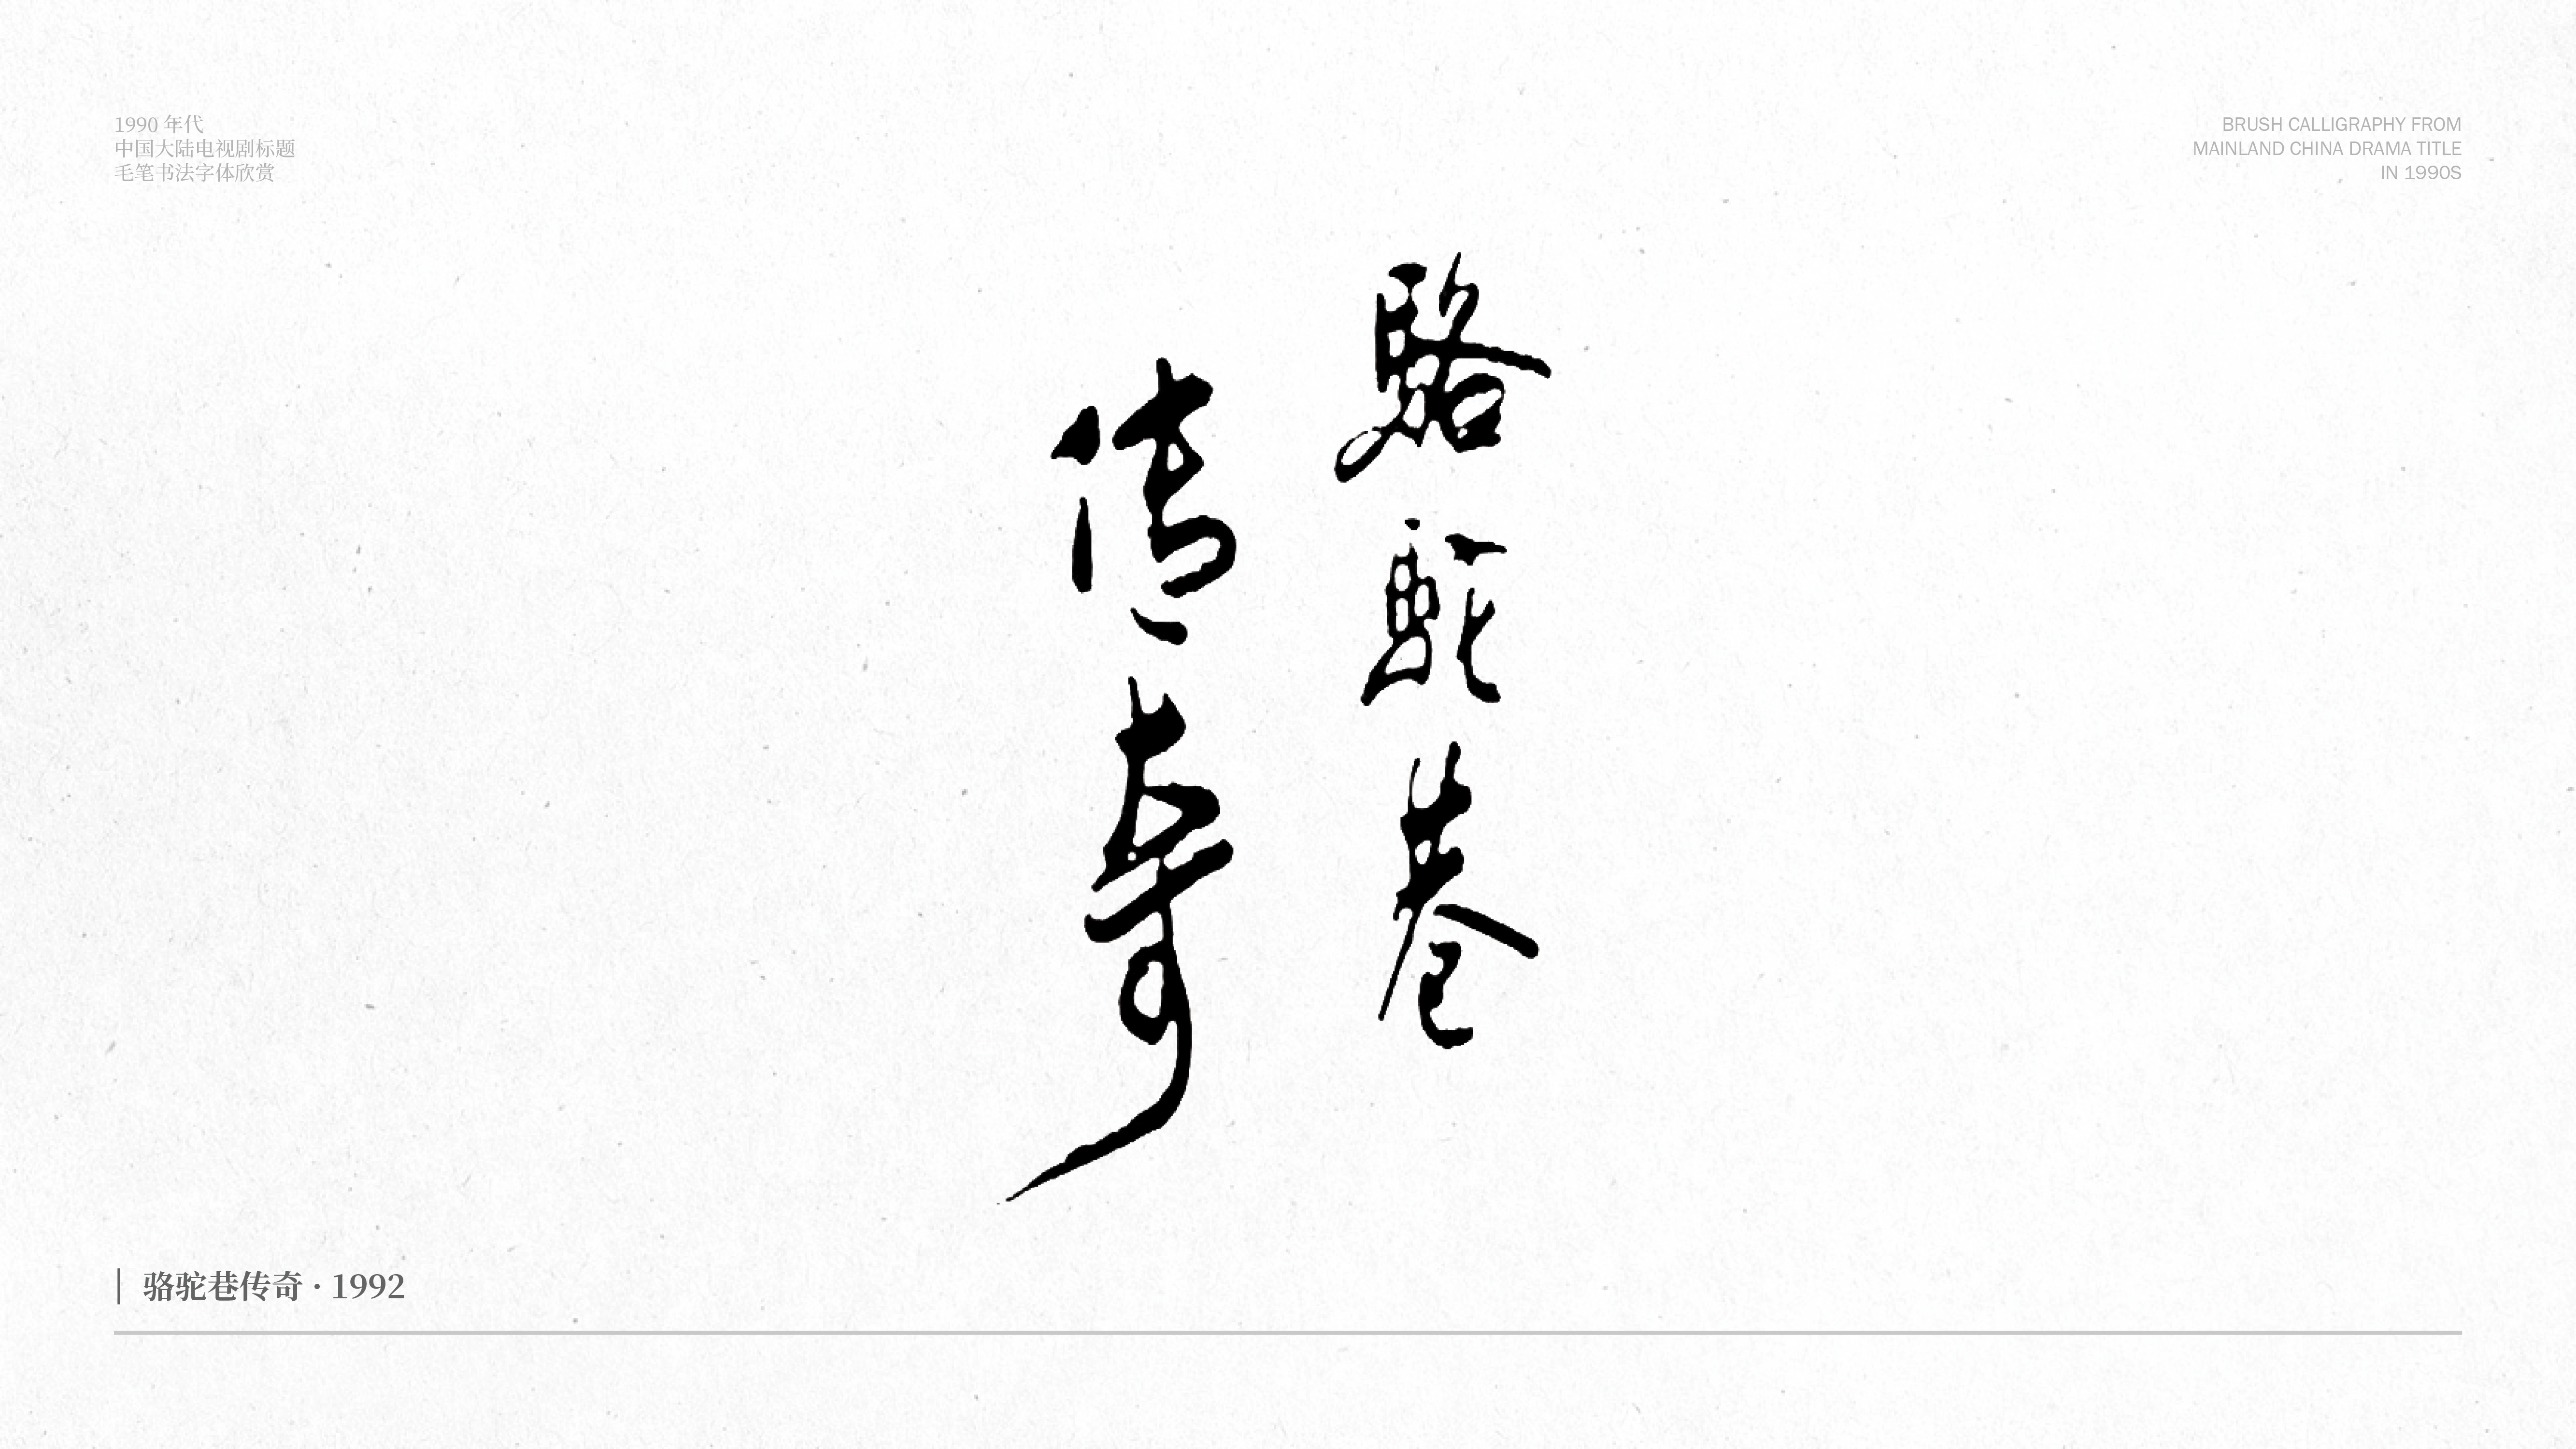 1990 年代
中国大陆电视剧标题
毛笔书法字体欣赏
BRUSH CALLIGRAPHY FROM
MAINLAND CHINA DRAMA TITLE
IN 1990S
駱駝巷
传奇
骆驼巷传奇 · 1992